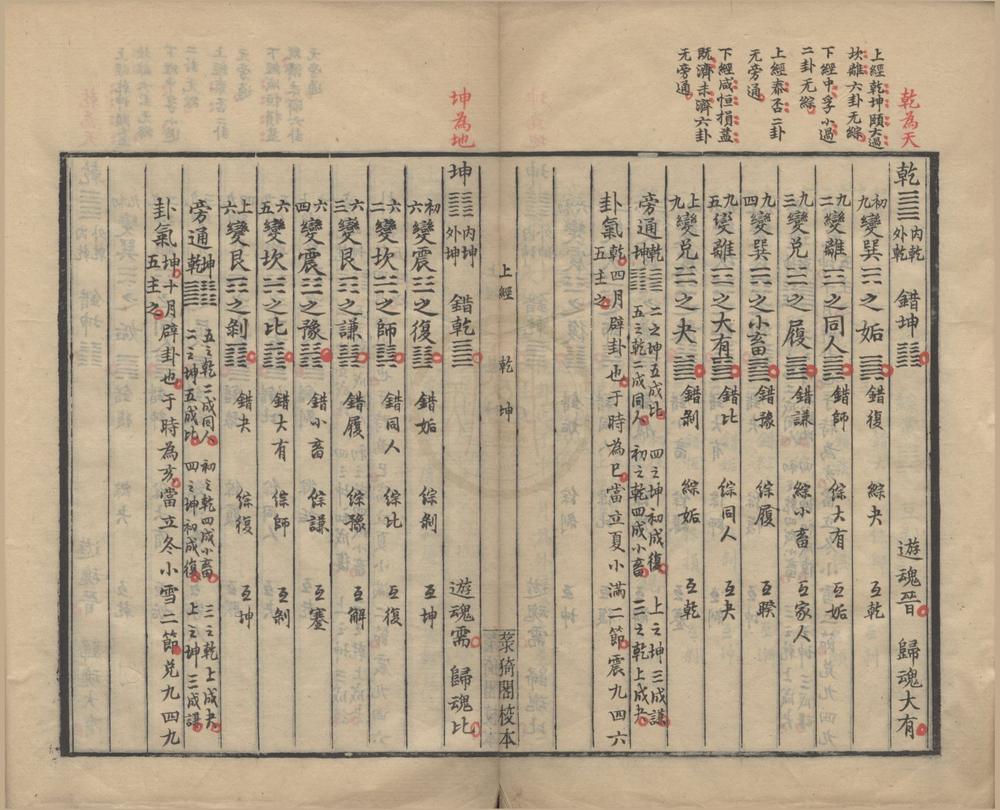 乾為天
上經乾坤頤大過
坎離六卦无綜
下經中孚小過
二卦无綜
上經泰否二卦
无旁通
下經咸恒損益
既濟未濟六卦
无旁通
乾䷀內乾外乾 錯坤䷁ 遊魂晉 歸魂大有
初九變巽☴之姤䷫ 錯復 綜夬 互乾
九二變離☲之同人䷌ 錯師 綜大有 互姤
九三變兌☱之履䷉ 錯謙 綜小畜 互家人
九四變巽☴之小畜䷈ 錯豫 綜履 互睽
九五變離☲之大有䷍ 錯比 綜同人 互夬
上九變兌☱之夬䷪ 錯剝 綜姤 互乾
旁通乾䷀坤䷁ 二之坤五成比 四之坤初成復 上之坤三成謙
五之乾二成同人 初之乾四成小畜 三之乾上成夬
卦氣乾四月辟卦也于時為巳當立夏小滿二節震九四六
五主之
上經 乾 坤
菉猗閣校本
坤為地
坤䷁內坤外坤 錯乾䷀ 遊魂需 歸魂比
初六變震☳之復䷗ 錯姤 綜剝 互坤
六二變坎☵之師䷆ 錯同人 綜比 互復
六三變艮☶之謙䷎ 錯履 綜豫 互解
六四變震☳之豫䷏ 錯小畜 綜謙 互蹇
六五變坎☵之比䷇ 錯大有 綜師 互剝
上六變艮☶之剝䷖ 錯夬 綜復 互坤
旁通坤䷁乾䷀ 五之乾二成同人 初之乾四成小畜 三之乾上成夬
二之坤五成比 四之坤初成復 上之坤三成謙
卦氣坤十月辟卦也于時為亥當立冬小雪二節兌九四九
五主之